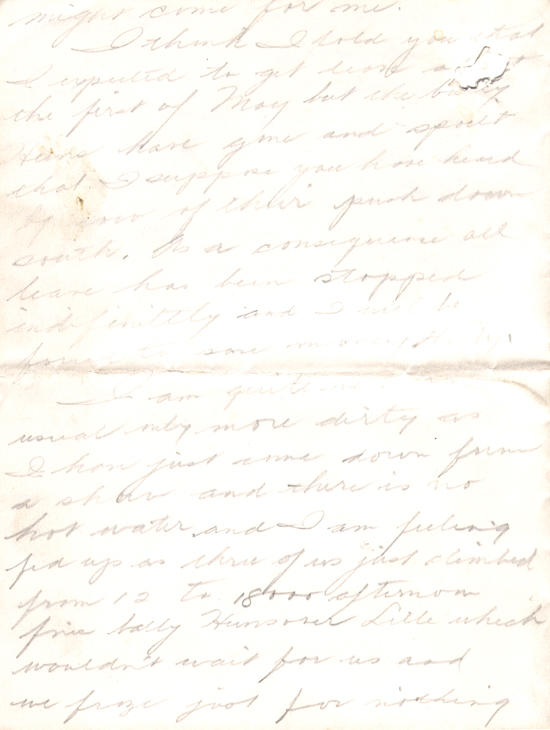 might come for me.
I think I told you that
I expected to get leave
the first of May but the bally
Huns have gone and spoilt
that I suppose you have heard
by now of their push down
south. As a consequence all
leave has been stopped
indefinitly and I will be
forced to save money
I am quite
usual only more dirty as
I have just come down from
a show and there is no
hot water and I am feeling
fed up as three of us just climbed
from 12 to 18000 after
five bally Huns over Lille which
wouldn't wait for us and
we froze just for nothing